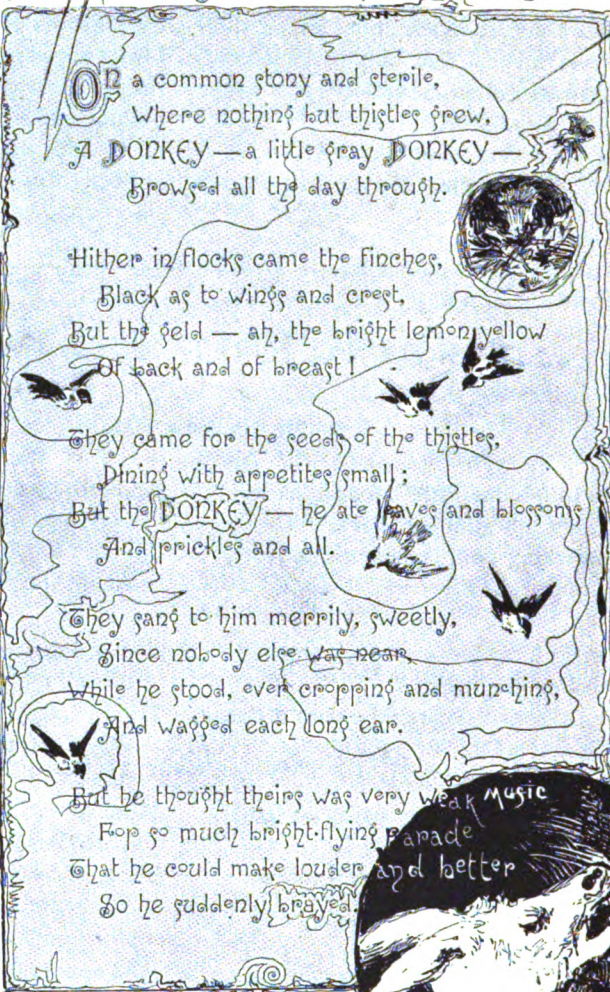 On a common stony and sterile,
Where nothing but thistles grew,
A DONKEY — a little gray DONKEY —
Browsed all the day through.
Hither in flocks came the finches,
Black as to wings and crest,
But the geld — ah, the bright lemon yellow
Of back and of breast!
They came for the seeds of the thistles,
Dining with appetites small;
But the DONKEY — he ate leaves and blossoms
And prickles and all.
They sang to him merrily, sweetly,
Since nobody else was near,
While he stood, ever cropping and munching,
And wagged each long ear.
But he thought theirs was very weak music
For so much bright-flying parade
That he could make louder and better
So he suddenly brayed.